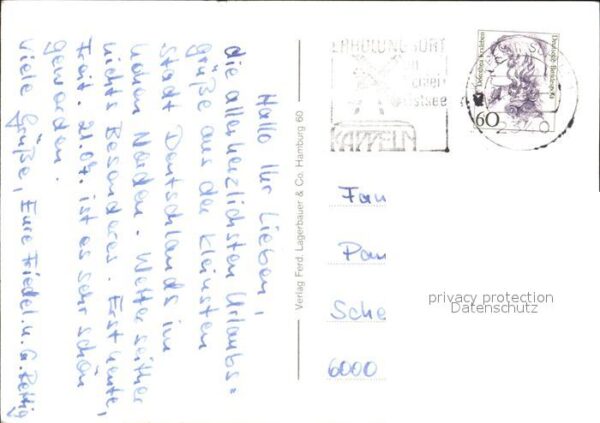 Hallo Ihr Lieben,
die allerherzlichsten Urlaubs=
grüße aus der kleinsten
Stadt Deutschlands im
hohen Norden. Wetter seither
nichts Besonderes. Erst heute,
Freit. 21.07. ist es sehr schön
geworden.
Viele Grüße, Eure Friedel u. G. Rettig
Verlag Ferd. Lagerbauer & Co. Hamburg 60
ERHOLUNGSORT
Ostsee
KAPPELN
Deutsche Bundespost
60
2340
Fam
Pau
Sche
6000
privacy protection
Datenschutz